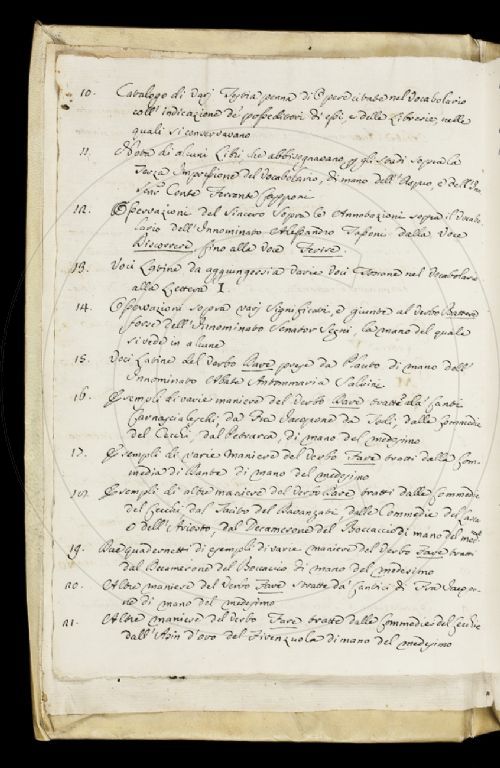 10. Catalogo di varj Testi a penna di Opere citate nel Vocabolario
coll' indicazione de' possessori di essi, e delle Librerie, nelle
quali si conservavano
11. Nota di alcuni Libri che abbisognavano gli studi sopra la
Terza Impressione del Vocabolario, di mano dell' e dell'
Conte Ferrante Capponi
12. Osservazioni del sopra le Annotazioni sopra il Vocabo
lario dell' Innominato Alessandro Tassoni dalla Voce
Discorrere, fino alla Voce Ferire.
13. Voci Latine da aggiungersi a varie Voci Toscane nel Vocabolario
alla Lettera I.
14. Osservazioni sopra varj significati, e giunte al Verbo Battere
forse dell' Innominato Senator Segni, la mano del quale
si vede in alcune
15. Voci Latine del Verbo Dare prese da Plauto di mano dell'
Innominato Abate Antonmaria Salvini
16. Esempli di varie maniere del Verbo Dare tratte da' Canti
Carnascialeschi, da Fra Jacopone da Todi, dalle Commedie
del Cecchi, dal Petrarca, di mano del medesimo
17. Esempli di varie maniere del Verbo Fare tratti dalla Com-
media di Dante di mano del medesimo
18. Esempli di altre maniere del Verbo Dare tratti dalle Commedie
del Cecchi, dal Tacito del Davanzati, dalle Commedie del Lasca
e dell' Ariosto, dal Decamerone del Boccaccio di mano del med.
19. Due quadernetti di esempli di varie maniere del Verbo Fare tratti
dal Decamerone del Boccaccio di mano del medesimo
20. Altre maniere del Verbo Fare tratte da' Cantici di Fra Jacopo-
ne di mano del medesimo
21. Altre maniere del Verbo Fare tratte dalle Commedie del Cecchi e
dall' Asin d'oro del Firenzuola di mano del medesimo